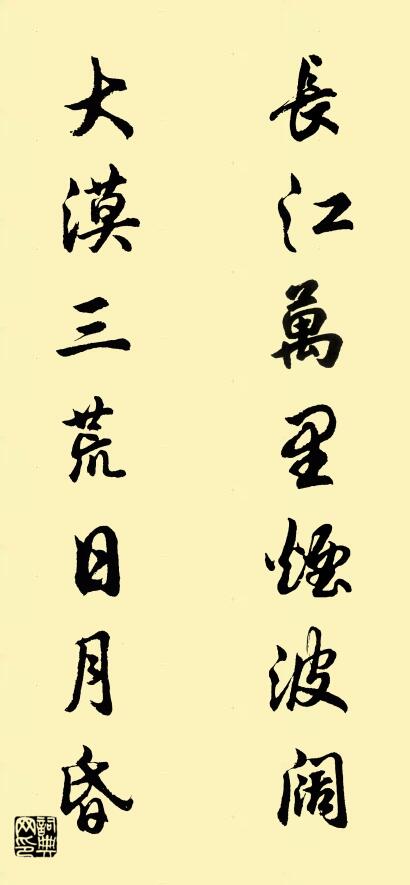 長江萬里煙波闊
大漠三荒日月昏
詞典網印